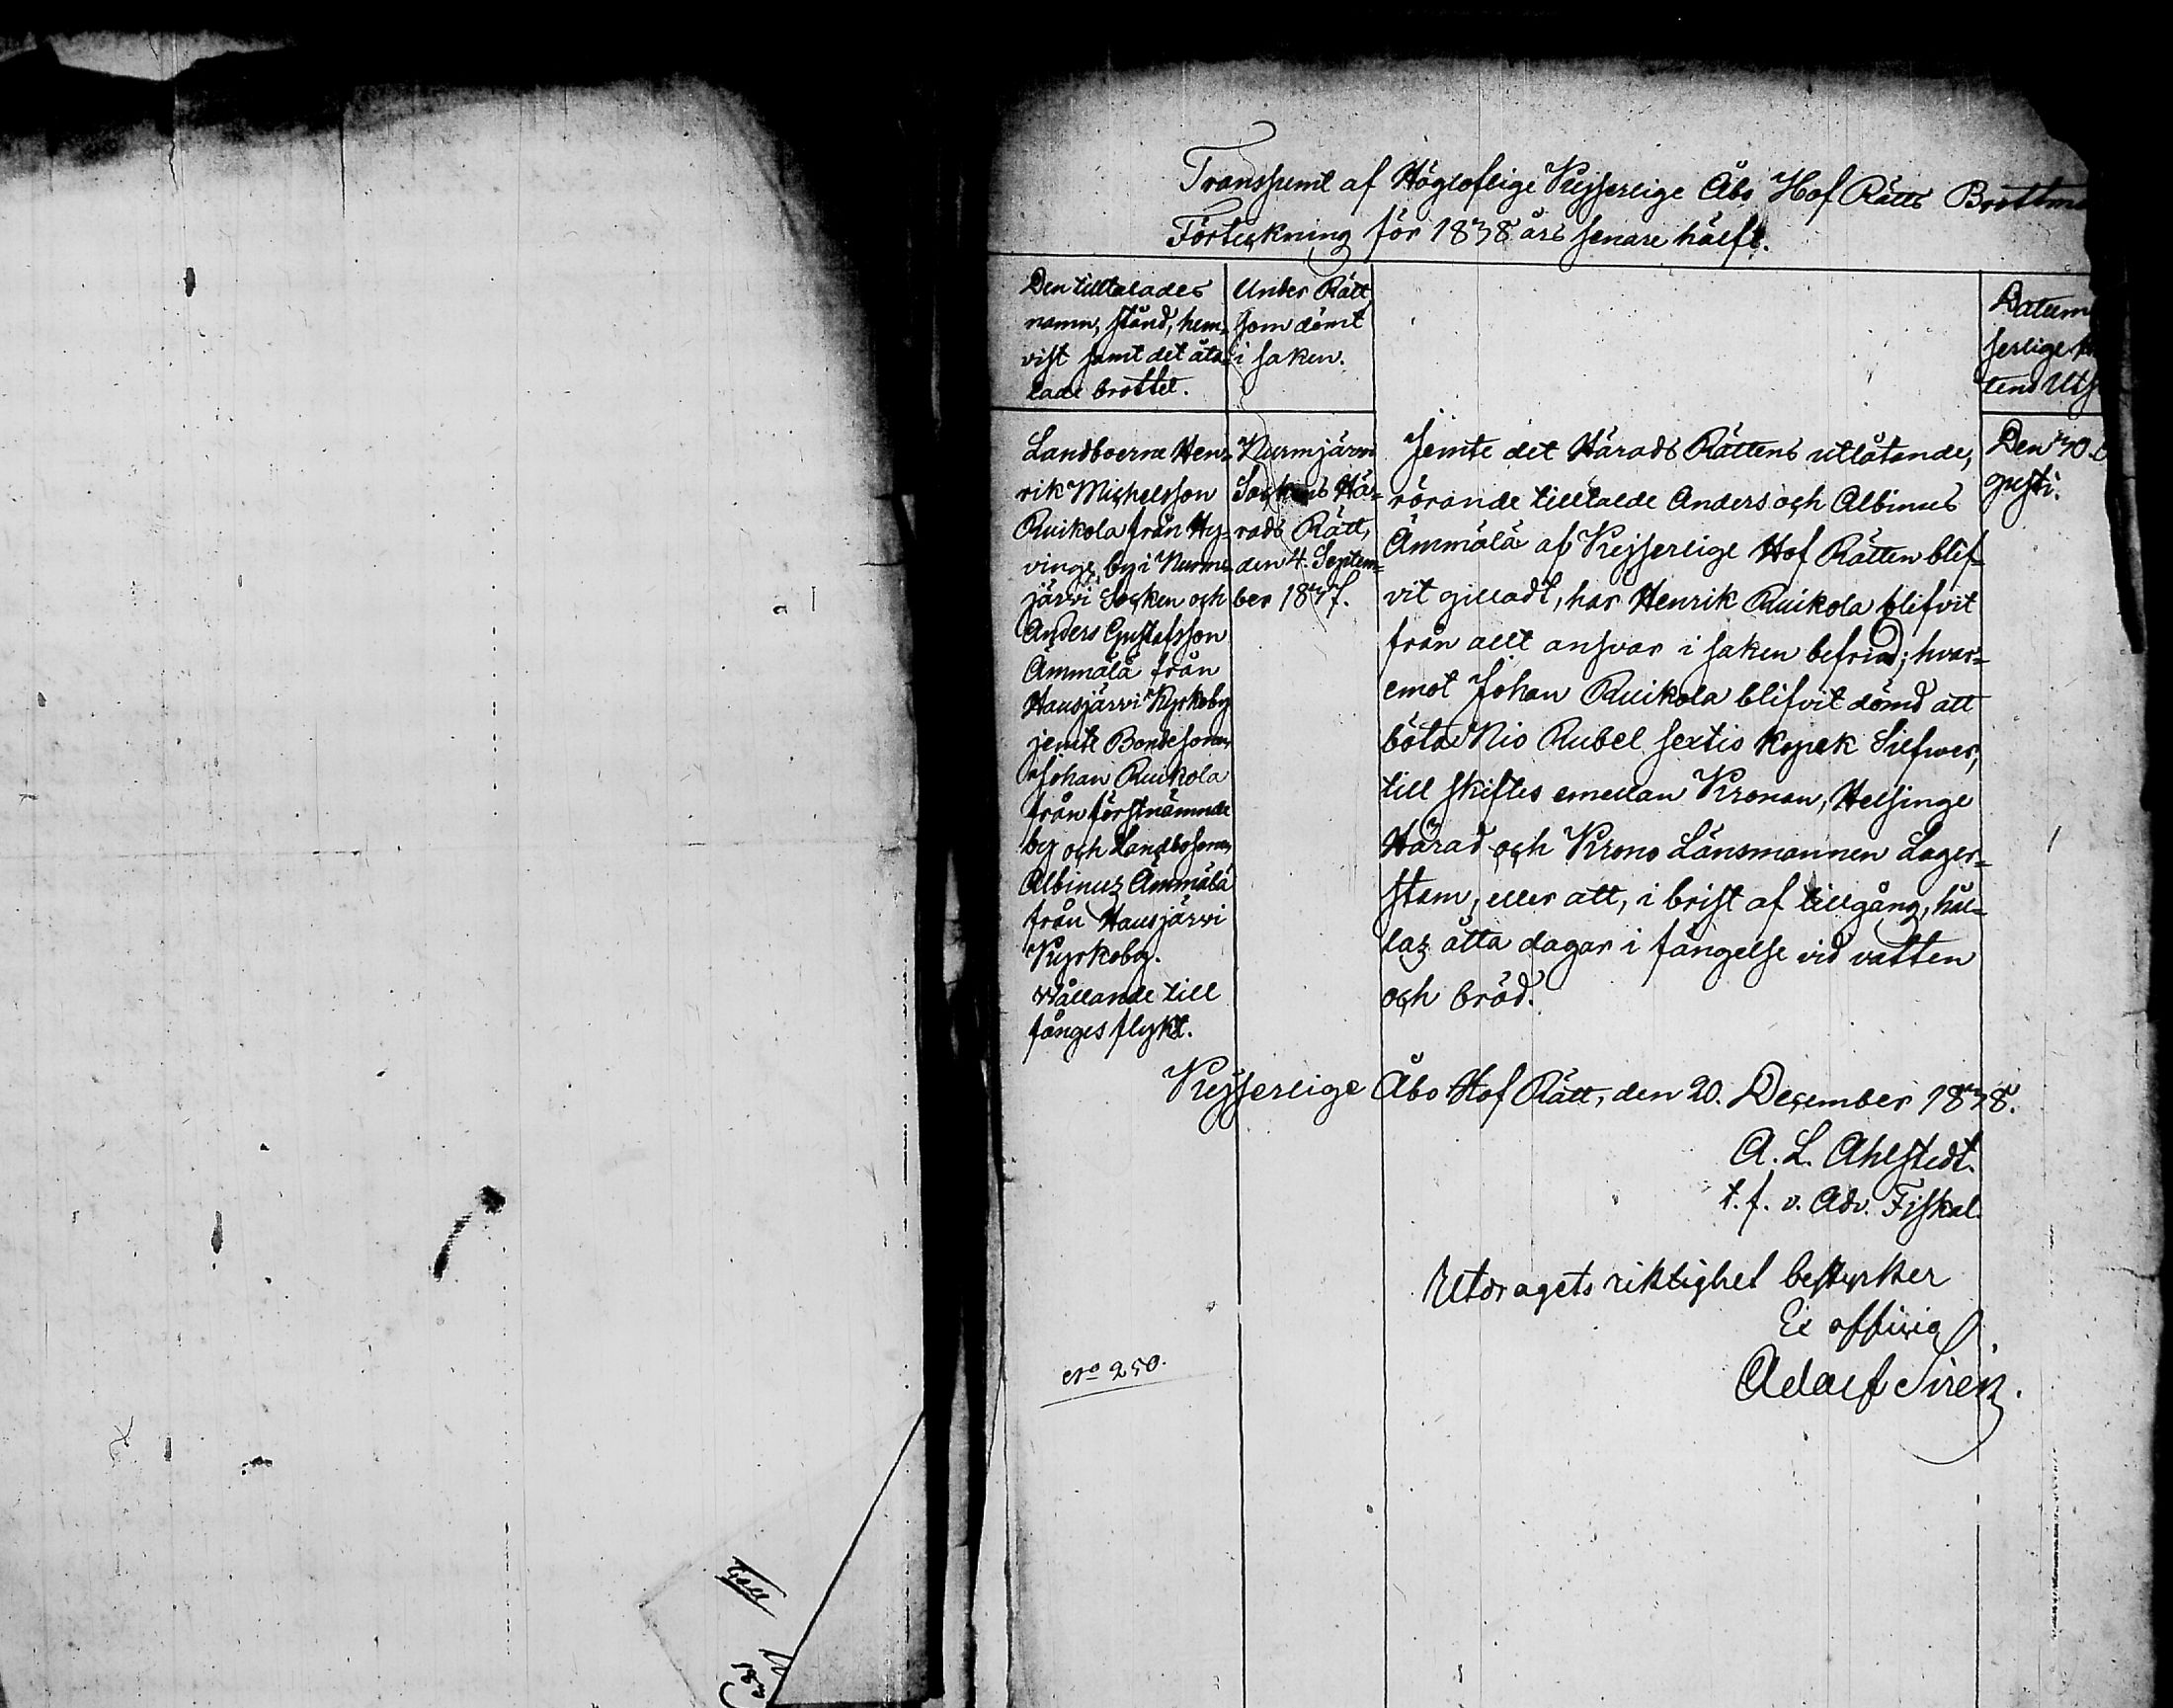 Transsumt af Högloflige Kejserlige Åbo Hof Rätts
Förteckning för 1838 års senare hälft.
Den tilltalades
namn, stånd, hem-
vist samt det åta-
lade brottet.
Under Rätt
som dömt
i saken.
Datum
serlige
tens
Landboerne Hen-
rik Michelsson
Ruikola från Hy-
vinge by i Nurmi-
järvi Socken och
Anders Gustafsson
Ämmälä från
Hausjärvi Kyrkoby
jemte Bondesonen
Johan Ruikola
från förstnämnde
by och Landbosonen
Albinus Ämmälä
från Hausjärvi
Kyrkoby.
Wållande till
fånges flykt.
Nurmjärvi
Sockens Hä-
rads Rätt,
den 4. Septem-
ber 1837.
Jemte det Härads Rättens utlåtande,
rörande tilltalde Anders och Albinus
Ämmälä af Kejserlige Hof Rätten blif-
vit gilladt, har Henrik Ruikola blifvit
från allt ansvar i saken befriad; hvar-
emot Johan Ruikola blifvit dömd att
böta Nio Rubel sextio Kopek Silfwer,
till skiftes emellan Kronan, Helsinge
Härad och Krono Länsmannen Lager-
stam, eller att, i brist af tillgång, hål-
las åtta dagar i fängelse vid vatten
och bröd.
Den 30.
gusti.
Kejserlige Åbo Hof Rätt, den 20. December 1838.
A. L. Ahlstedt.
t. f. v. Adv. Fiskal.
Utdragets riktighet bestyrker
Ex officio
Adolf Sirén.
No 250.